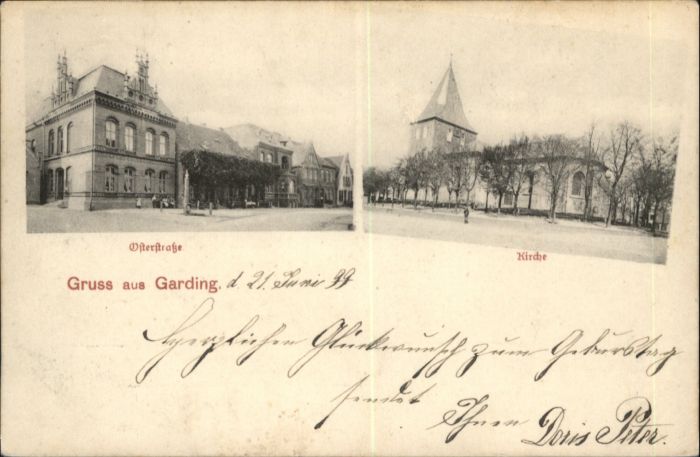 Osterstraße
Kirche
Gruss aus Garding. d 21. Juni 99
Herzlichen Glückwunsch zum Geburstag
sendet Ihnen Doris Peter.